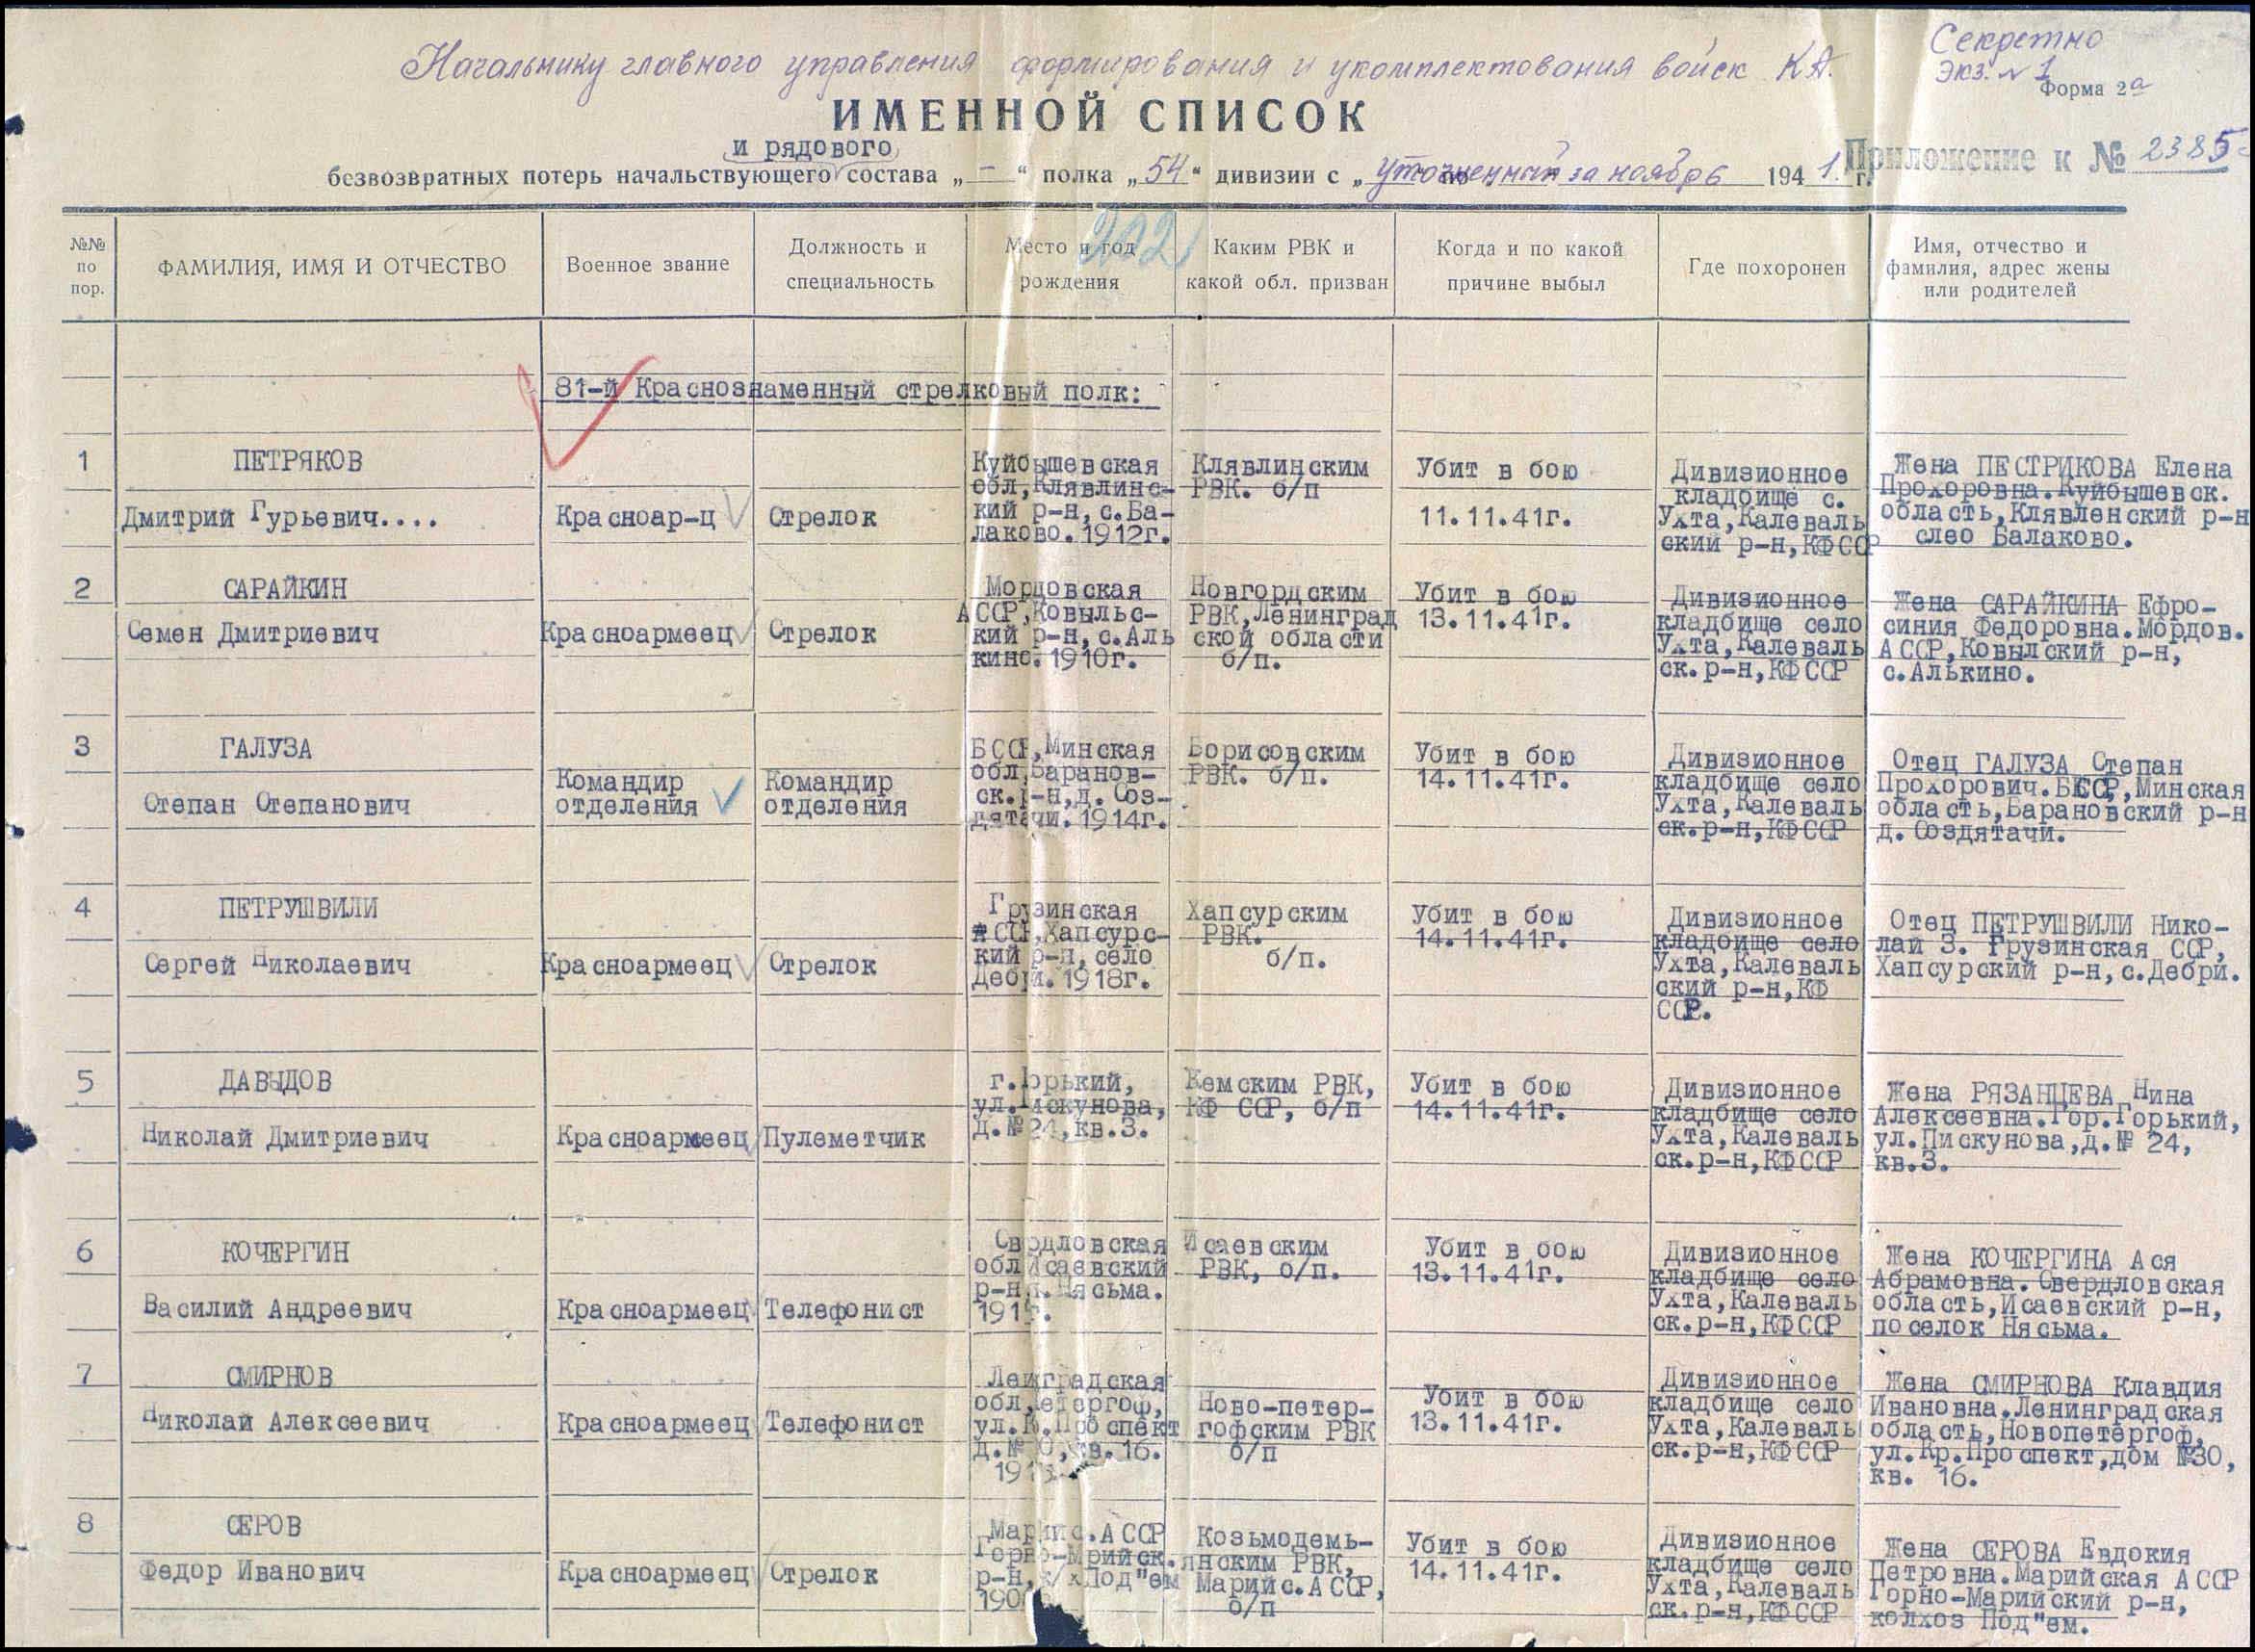 Секретно
Экз. № 1
Начальнику главного управления формирования и укомплектования войск КА.
Форма 2а
ИМЕННОЙ СПИСОК
Приложение к № 2385с
и рядового
безвозвратных потерь начальствующего состава „ – “ полка „ 54 “ дивизии с „ уточненный за ноябрь 1941 г.
202
№№
по
пор.
ФАМИЛИЯ, ИМЯ И ОТЧЕСТВО
Военное звание
Должность и
специальность
Место и год
рождения
Каким РВК и
какой обл. призван
Когда и по какой
причине выбыл
Где похоронен
Имя, отчество и
фамилия, адрес жены
или родителей
81-й Краснознаменный стрелковый полк:
1
ПЕТРЯКОВ
Дмитрий Гурьевич....
Красноар-ц
Стрелок
Куйбышевская
обл,Клявлинс-
кий р-н,с.Ба-
лаково.1912г.
Клявлинским
РВК. б/п
Убит в бою
11.11.41г.
Дивизионное
кладбище с.
Ухта,Калеваль
ский р-н,КФССР
Жена ПЕСТРИКОВА Елена
Прохоровна.Куйбышевск.
область,Клявленский р-н
слео Балаково.
2
САРАЙКИН
Семен Дмитриевич
Красноармеец
Стрелок
Мордовская
АССР,Ковыльс-
кий р-н,с.Аль
кино.1910г.
Новгордским
РВК,Ленинград
ской области
б/п.
Убит в бою
13.11.41г.
Дивизионное
кладбище село
Ухта,Калеваль
ск.р-н,КФССР
Жена САРАЙКИНА Ефро-
синия Федоровна.Мордов.
АССР,Ковылский р-н,
с.Алькино.
3
ГАЛУЗА
Степан Степанович
Командир
отделения
Командир
отделения
БССР,Минская
обл,Баранов-
ск.р-н,д.Соз-
дятачи.1914г.
Борисовским
РВК. б/п.
Убит в бою
14.11.41г.
Дивизионное
кладбище село
Ухта,Калеваль
ск.р-н,КФССР
Отец ГАЛУЗА Степан
Прохорович.БССР,Минская
область,Барановский р-н
д.Создятачи.
4
ПЕТРУШВИЛИ
Сергей Николаевич
Красноармеец
Стрелок
Грузинская
ССР,Хапсурс-
кий р-н,село
Дебри.1918г.
Хапсурским
РВК.
б/п.
Убит в бою
14.11.41г.
Дивизионное
кладбище село
Ухта,Калеваль
ский р-н,КФ
ССР.
Отец ПЕТРУШВИЛИ Нико-
лай З. Грузинская ССР,
Хапсурский р-н,с.Дебри.
5
ДАВЫДОВ
Николай Дмитриевич
Красноармеец
Пулеметчик
г.Горький,
ул.Пискунова,
д.№24,кв.3.
Кемским РВК,
КФ ССР, б/п
Убит в бою
14.11.41г.
Дивизионное
кладбище село
Ухта,Калеваль
ск.р-н,КФССР
Жена РЯЗАНЦЕВА Нина
Алексеевна.Гор.Горький,
ул.Пискунова,д.№ 24,
кв.3.
6
КОЧЕРГИН
Василий Андреевич
Красноармеец
Телефонист
Свердловская
обл,Исаевский
р-н,п.Нясьма.
Исаевским
РВК, б/п.
Убит в бою
13.11.41г.
Дивизионное
кладбище село
Ухта,Калеваль
ск.р-н,КФССР
Жена КОЧЕРГИНА Ася
Абрамовна.Свердловская
область,Исаевский р-н,
поселок Нясьма.
7
СМИРНОВ
Николай Алексеевич
Красноармеец
Телефонист
Ленградская
обл,Петергоф,
ул.К.Проспект
д.№30,кв.16.
Ново-петер-
гофским РВК
б/п
Убит в бою
13.11.41г.
Дивизионное
кладбище село
Ухта,Калеваль
ск.р-н,КФССР
Жена СМИРНОВА Клавдия
Ивановна.Ленинградская
область,Новопетергоф,
ул.Кр.Проспект,дом №30,
кв. 16.
8
СЕРОВ
Федор Иванович
Красноармеец
Стрелок
Марийс.АССР
Горно-Мрийск.
р-н,к/хПод"ем
Козьмодемь-
янским РВК,
Марийс.АССР,
б/п
Убит в бою
14.11.41г.
Дивизионное
кладбище село
Ухта,Калеваль
ск.р-н,КФССР
Жена СЕРОВА Евдокия
Петровна.Марийская АССР
Горно-Марийский р-н,
колхоз Под"ем.